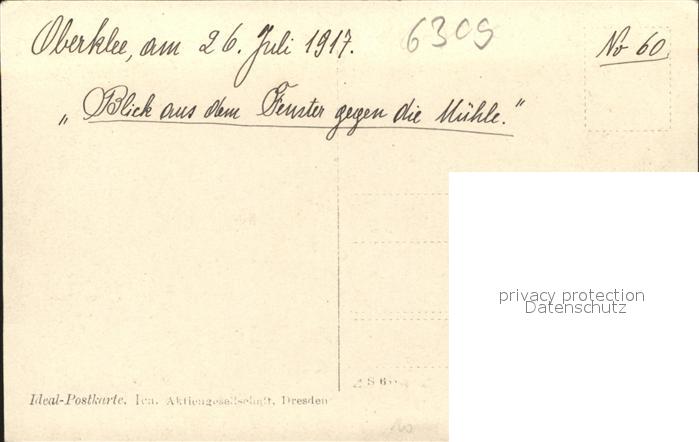 Oberklee, am 26. Juli 1917.
6309
No 60
„Blick aus dem Fenster gegen die Mühle."
privacy protection
Datenschutz
Ideal-Postkarte. Ica. Aktiengesellschaft, Dresden